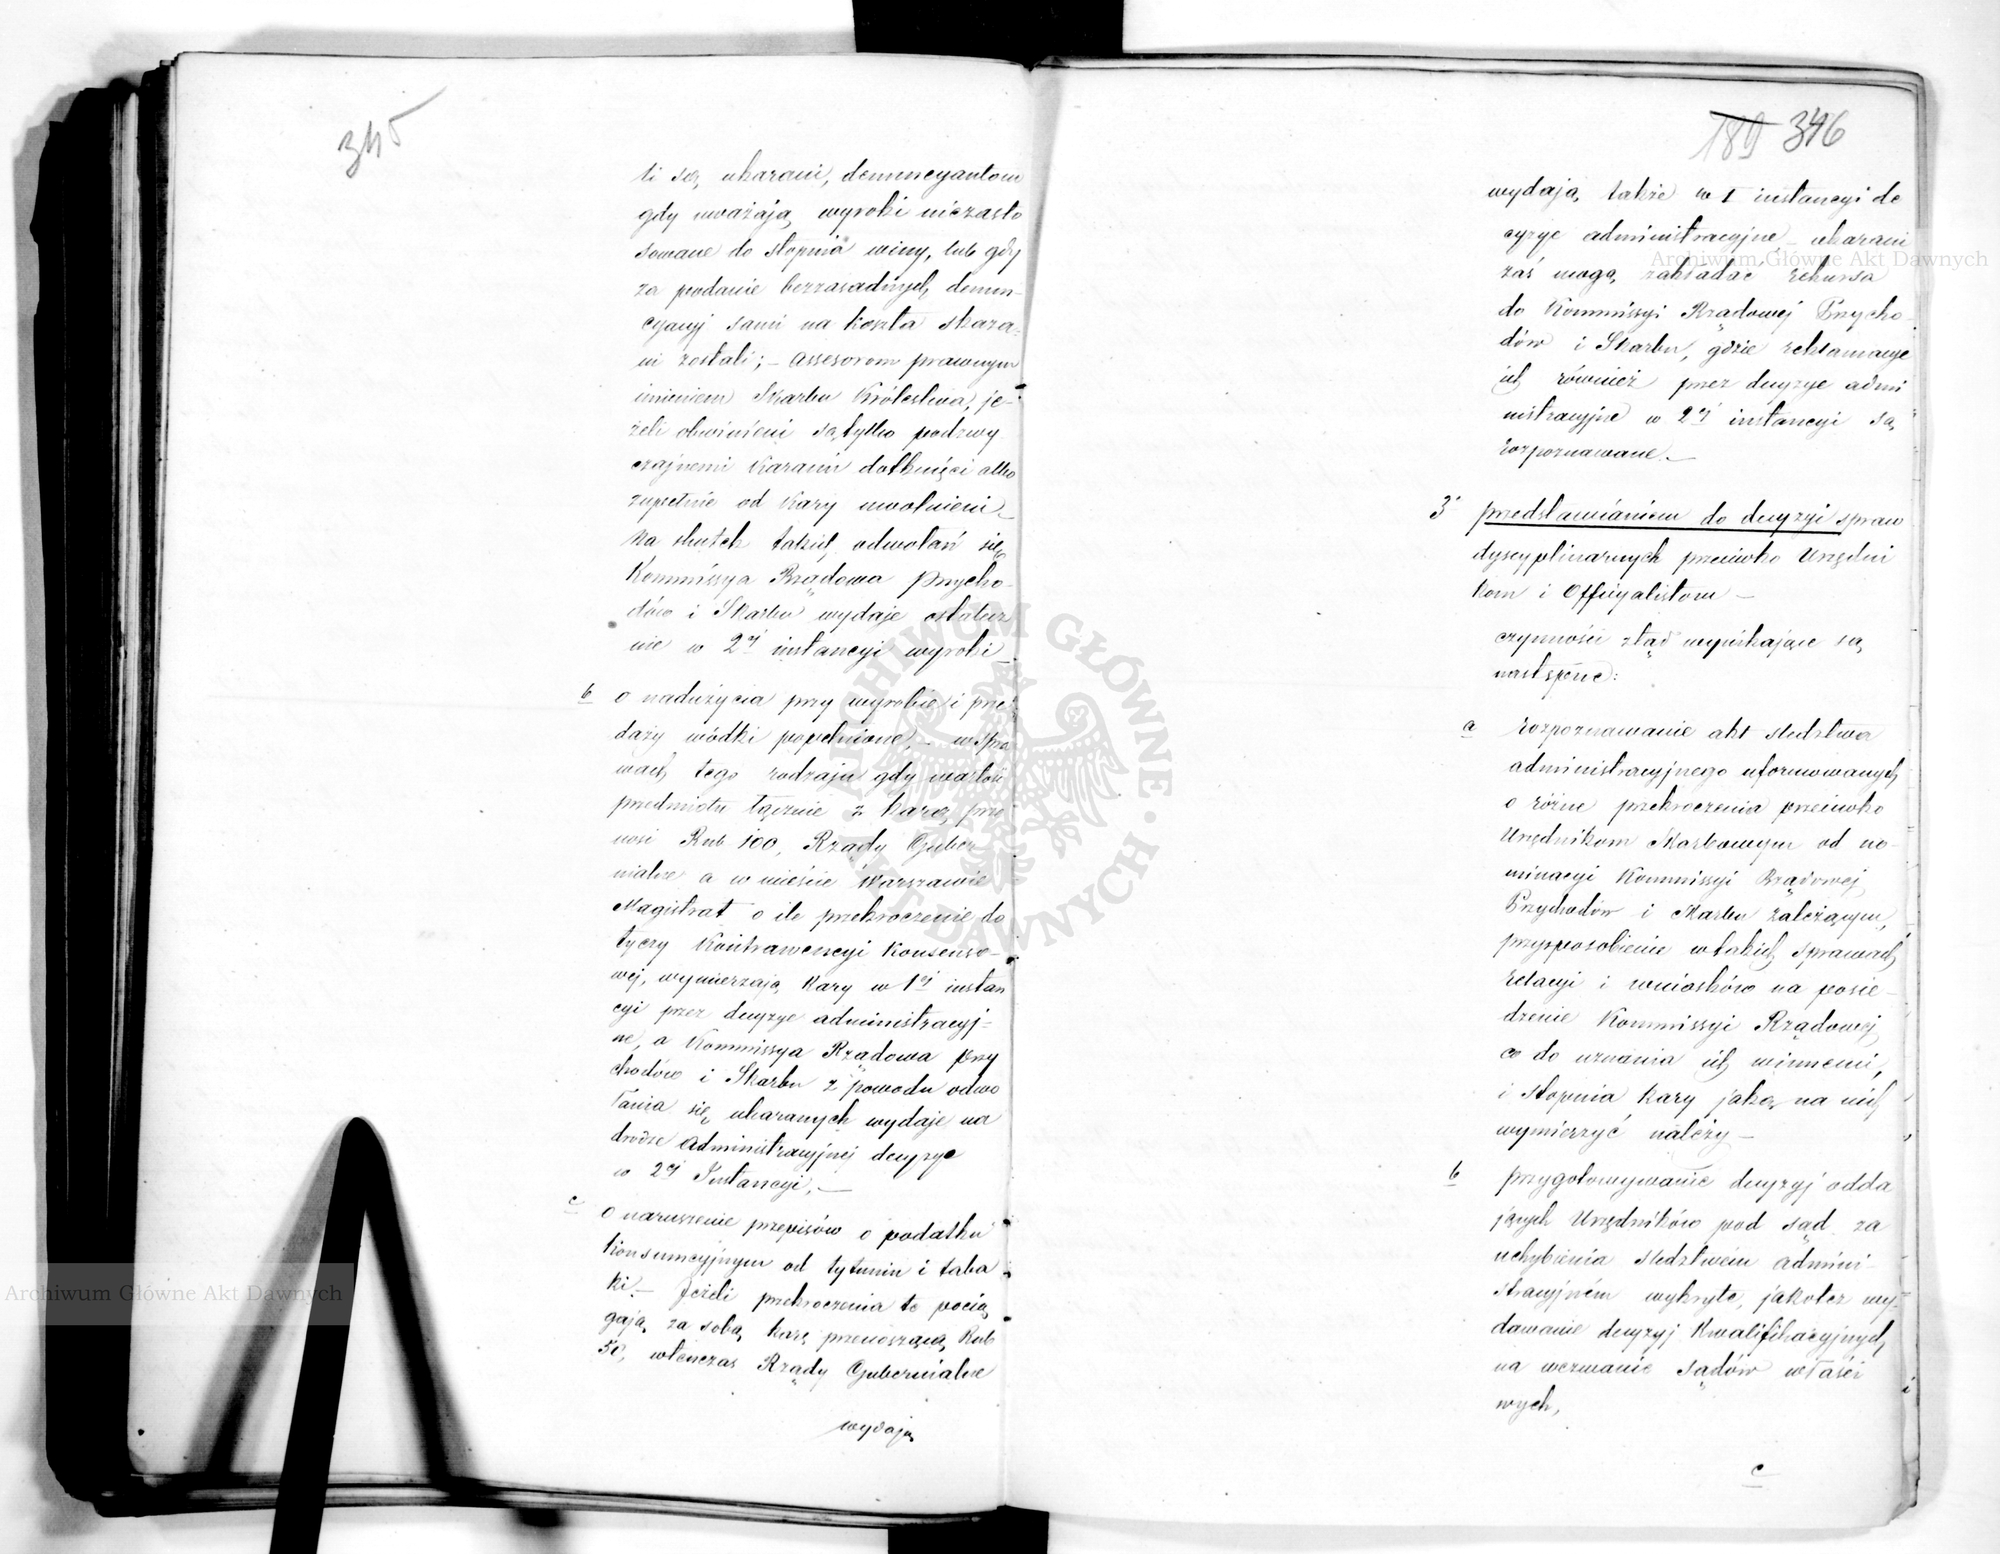 345
ti są ukarani, denuncyantom
gdy uważają wyroki niezasto
sowane do stopnia winy, lub gdy
za podanie bezzasadnych denun-
cyacyj sami na koszta skaza-
ni zostali; – Assesorom prawnym
imieniem Skarbu Królestwa, je-
żeli obwinieni są tylko podzwy
czajnemi karami dotknięci albo
zupełnie od kary uwolnieni –
Na skutek takich odwołań się
Kommissya Rządowa Przycho-
dów i Skarbu wydaje ostatecz
nie w 2éj instancyi wyroki –
b o nadużycia przy wyrobie i prze
daży wódki popełnione, – w spra
wach tego rodzaju gdy wartość
przedmiotu łącznie z karą prze
nosi Rub 100, Rządy Guber
nialne a w mieście Warszawie
Magistrat o ile przekroczenie do
tyczy Kontrawencyi Konsenso-
wej, wymierzają kary w 1éj instan
cyi przez decyzye administracyj-
ne, a Kommissya Rządowa Przy
chodów i Skarbu z powodu odwo
łania się ukaranych wydaje na
drodze Administracyjnej decyzye
w 2éj Instancyi, –
c o naruszenie przepisów o podatku
konsumcyjnym od tytuniu i taba
ki – Jeżeli przekroczenia te pocią
gają za sobą karę przenoszącą Rub
50, wtenczas Rządy Gubernialne
wydają
189 346
wydają także w I instancyi de
cyzye administracyjne – ukarani
zaś mogą zakładać rekursa
do Kommissyi Rządowej Przycho-
dów i Skarbu, gdzie reklamacye
ich również przez decyzye admi
nistracyjne w 2éj instancyi są
rozpoznawane. –
3° przedstawianiem do decyzyi spraw
dyscyplinarnych przeciwko Urzędni
kom i Officyalistom –
czynności ztąd wynikające są
następne:
a rozpoznawanie akt śledztwa
administracyjnego uformowanych
o różne przekroczenia przeciwko
Urzędnikom Skarbowym od no-
minacyi Kommissyi Rządowej
Przychodów i Skarbu zależącym,
przysposobienie w takich sprawach
relacyi i wniosków na posie-
dzenie Kommissyi Rządowej
co do uznania ich winnemi,
i stopnia kary jaką na nich
wymierzyć należy –
b przygotowywanie decyzyj odda
jących Urzędników pod sąd za
uchybienia śledztwem admini-
stracyjném wykryte, jakoteż wy-
dawanie decyzyj kwalifikacyjnych
na wezwanie sądów właści
wych,
c
Archiwum Główne Akt Dawnych
Archiwum Główne Akt Dawnych
ARCHIWUM GŁÓWNE AKT DAWNYCH